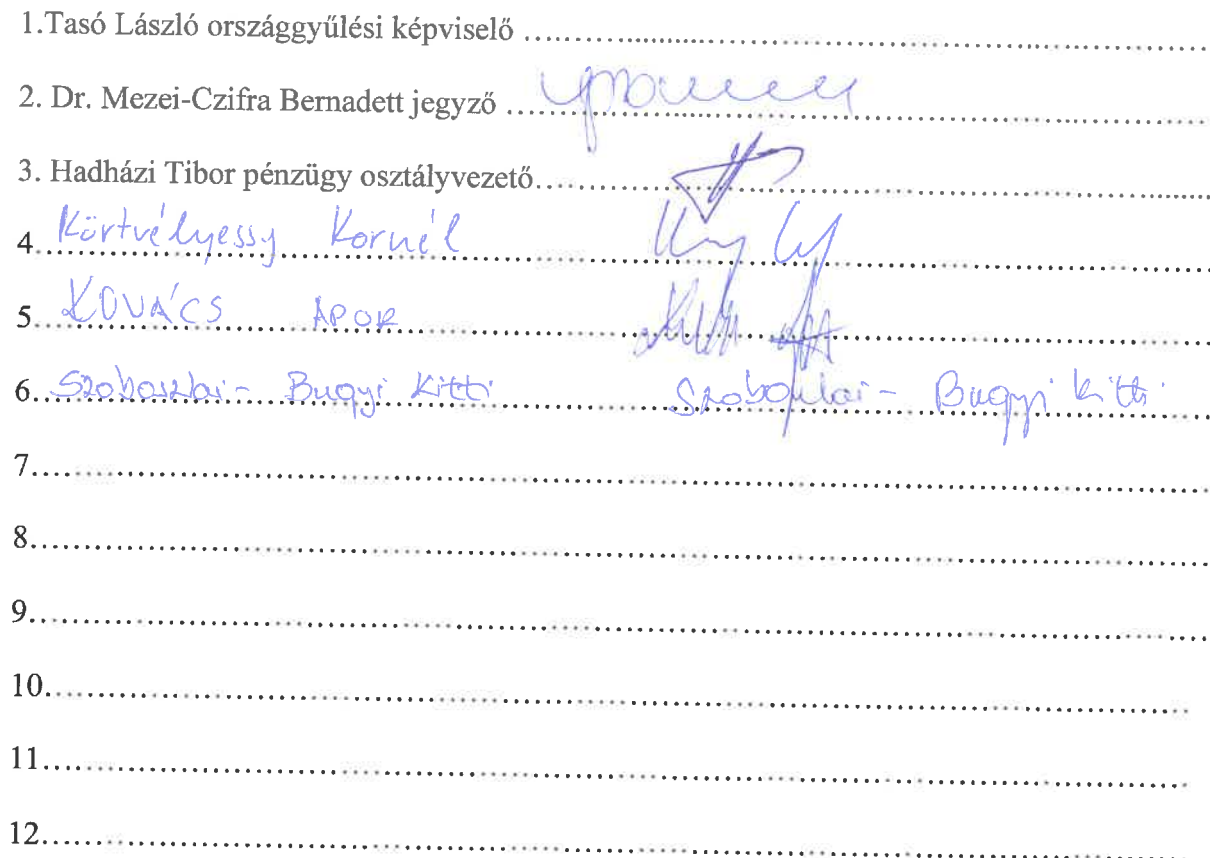 1.Tasó László országgyűlési képviselő ..........
2. Dr. Mezei-Czifra Bernadett jegyző ..........
3. Hadházi Tibor pénzügy osztályvezető..........
4. Körtvélyessy Kornél
5. KOVÁCS APOR
6. Szoboszlai - Bugyi Kitti Szoboszlai - Bugyi Kitti
7..........
8..........
9..........
10..........
11..........
12..........